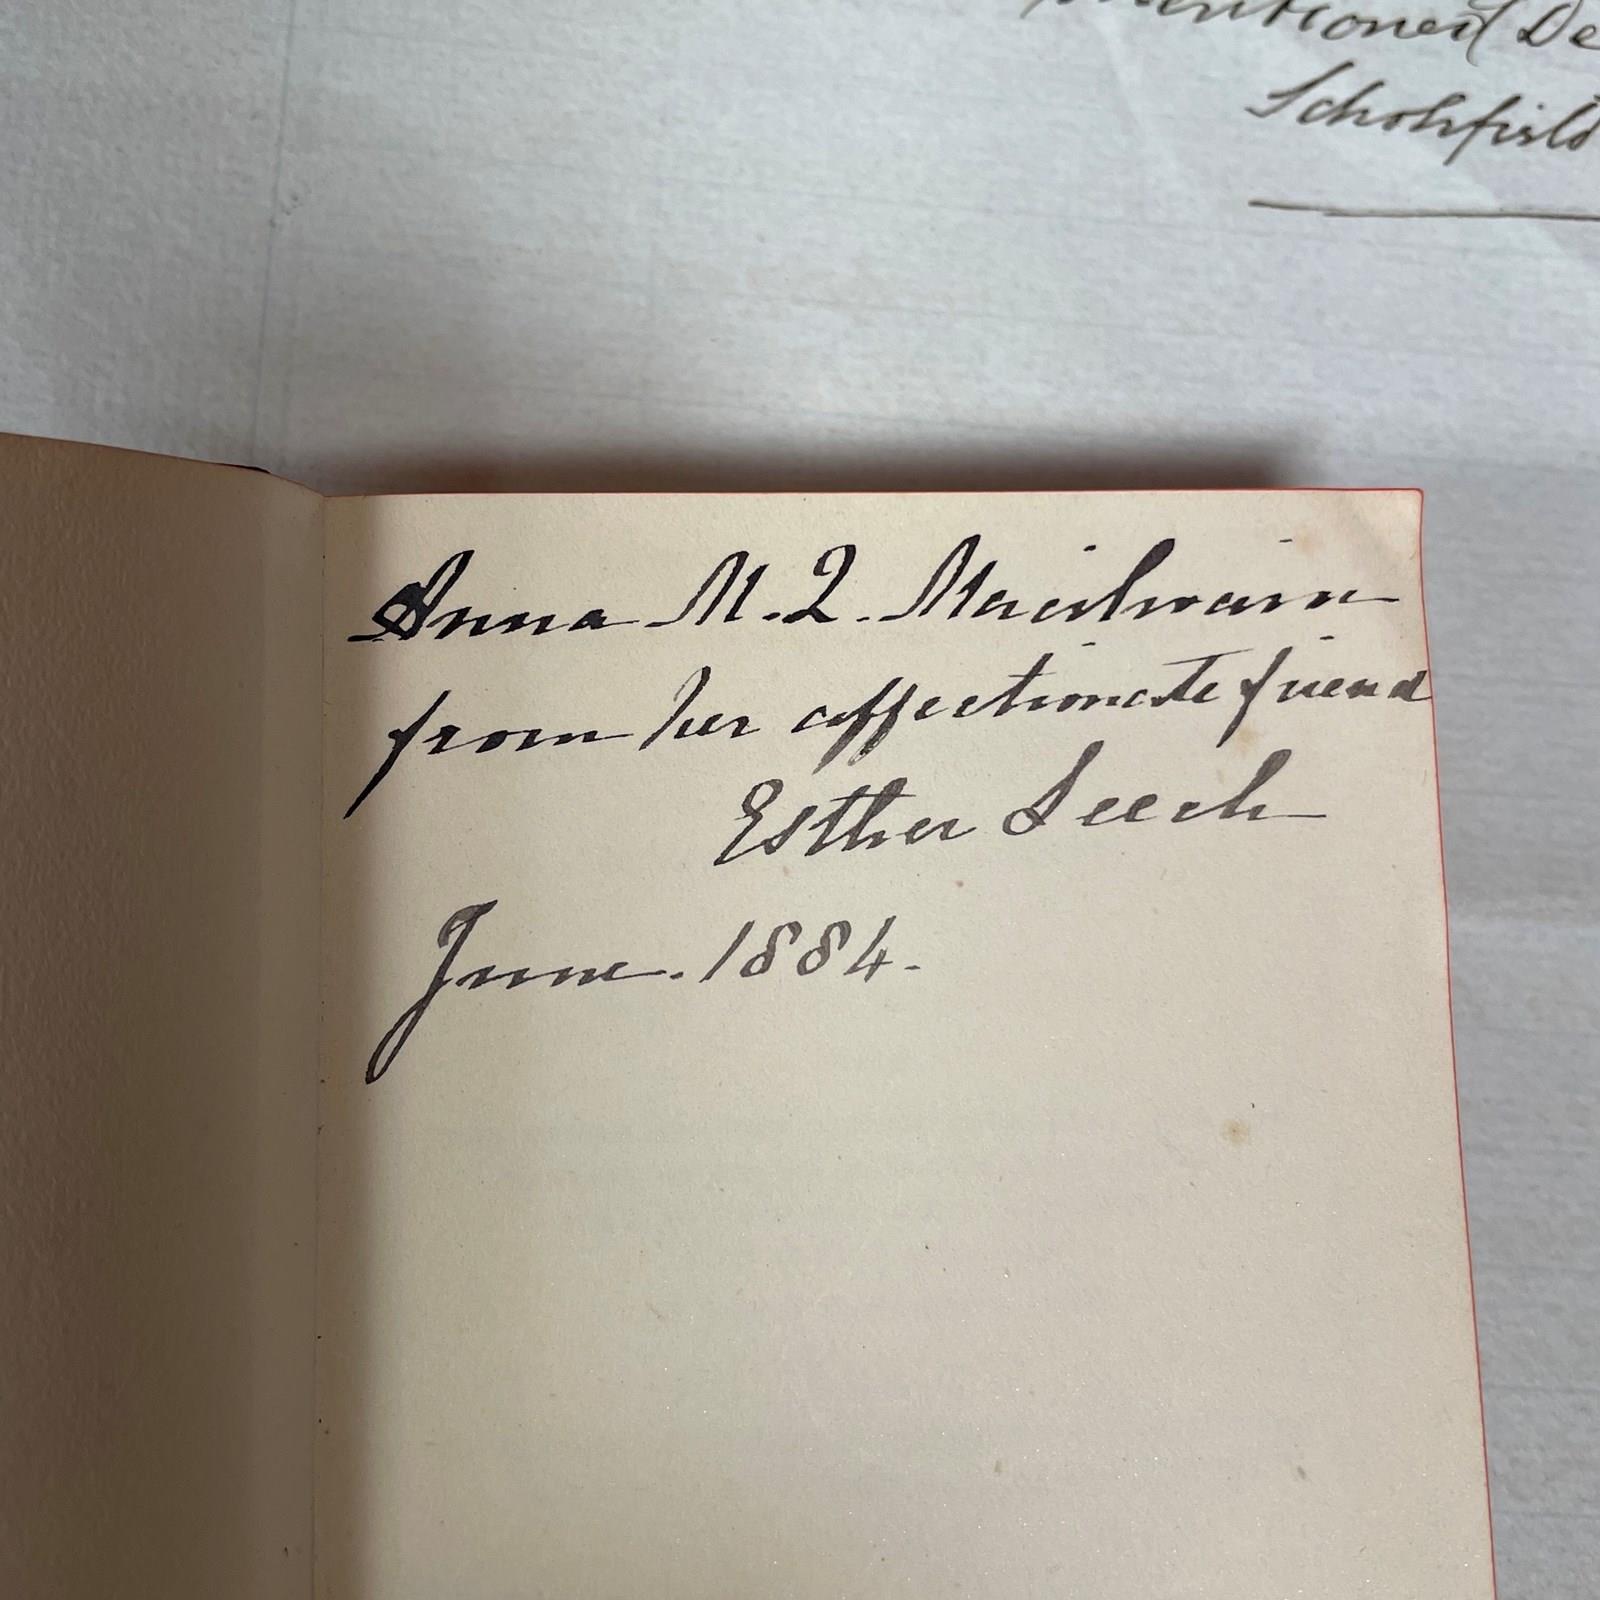 mentioned De
Schohfield
Anna M. Q. Macilwain
from her affectionate friend
Esther Leech
June. 1884.